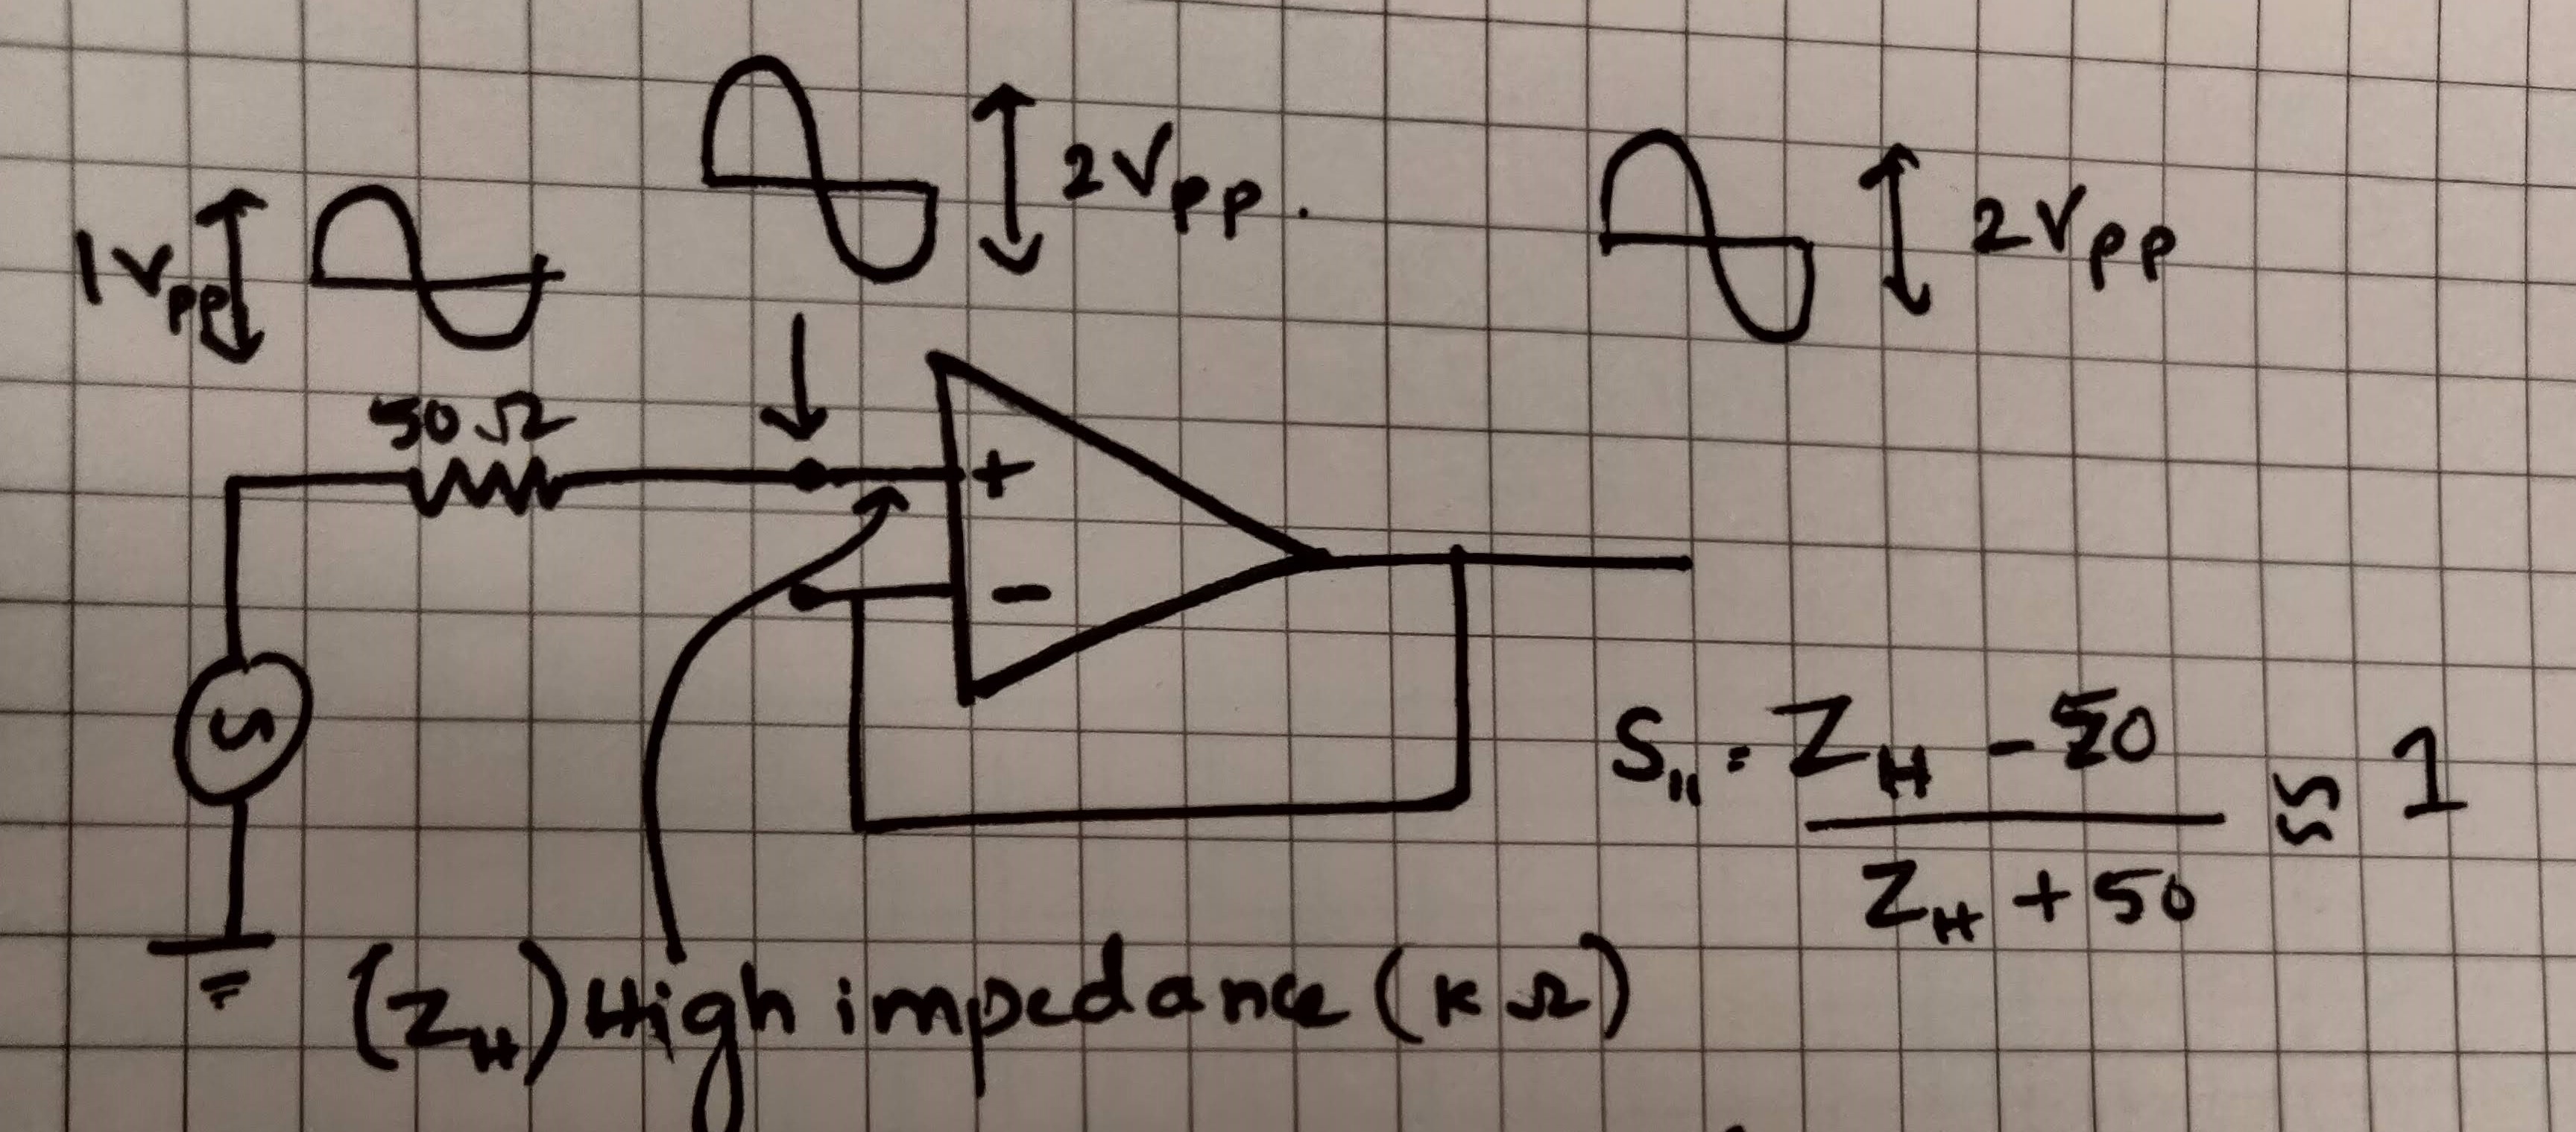 1Vpp
2Vpp.
2Vpp
50Ω
+
-
S₁₁ = Z_H - 50
Z_H + 50
≈ 1
(Z_H) High impedance (KΩ)